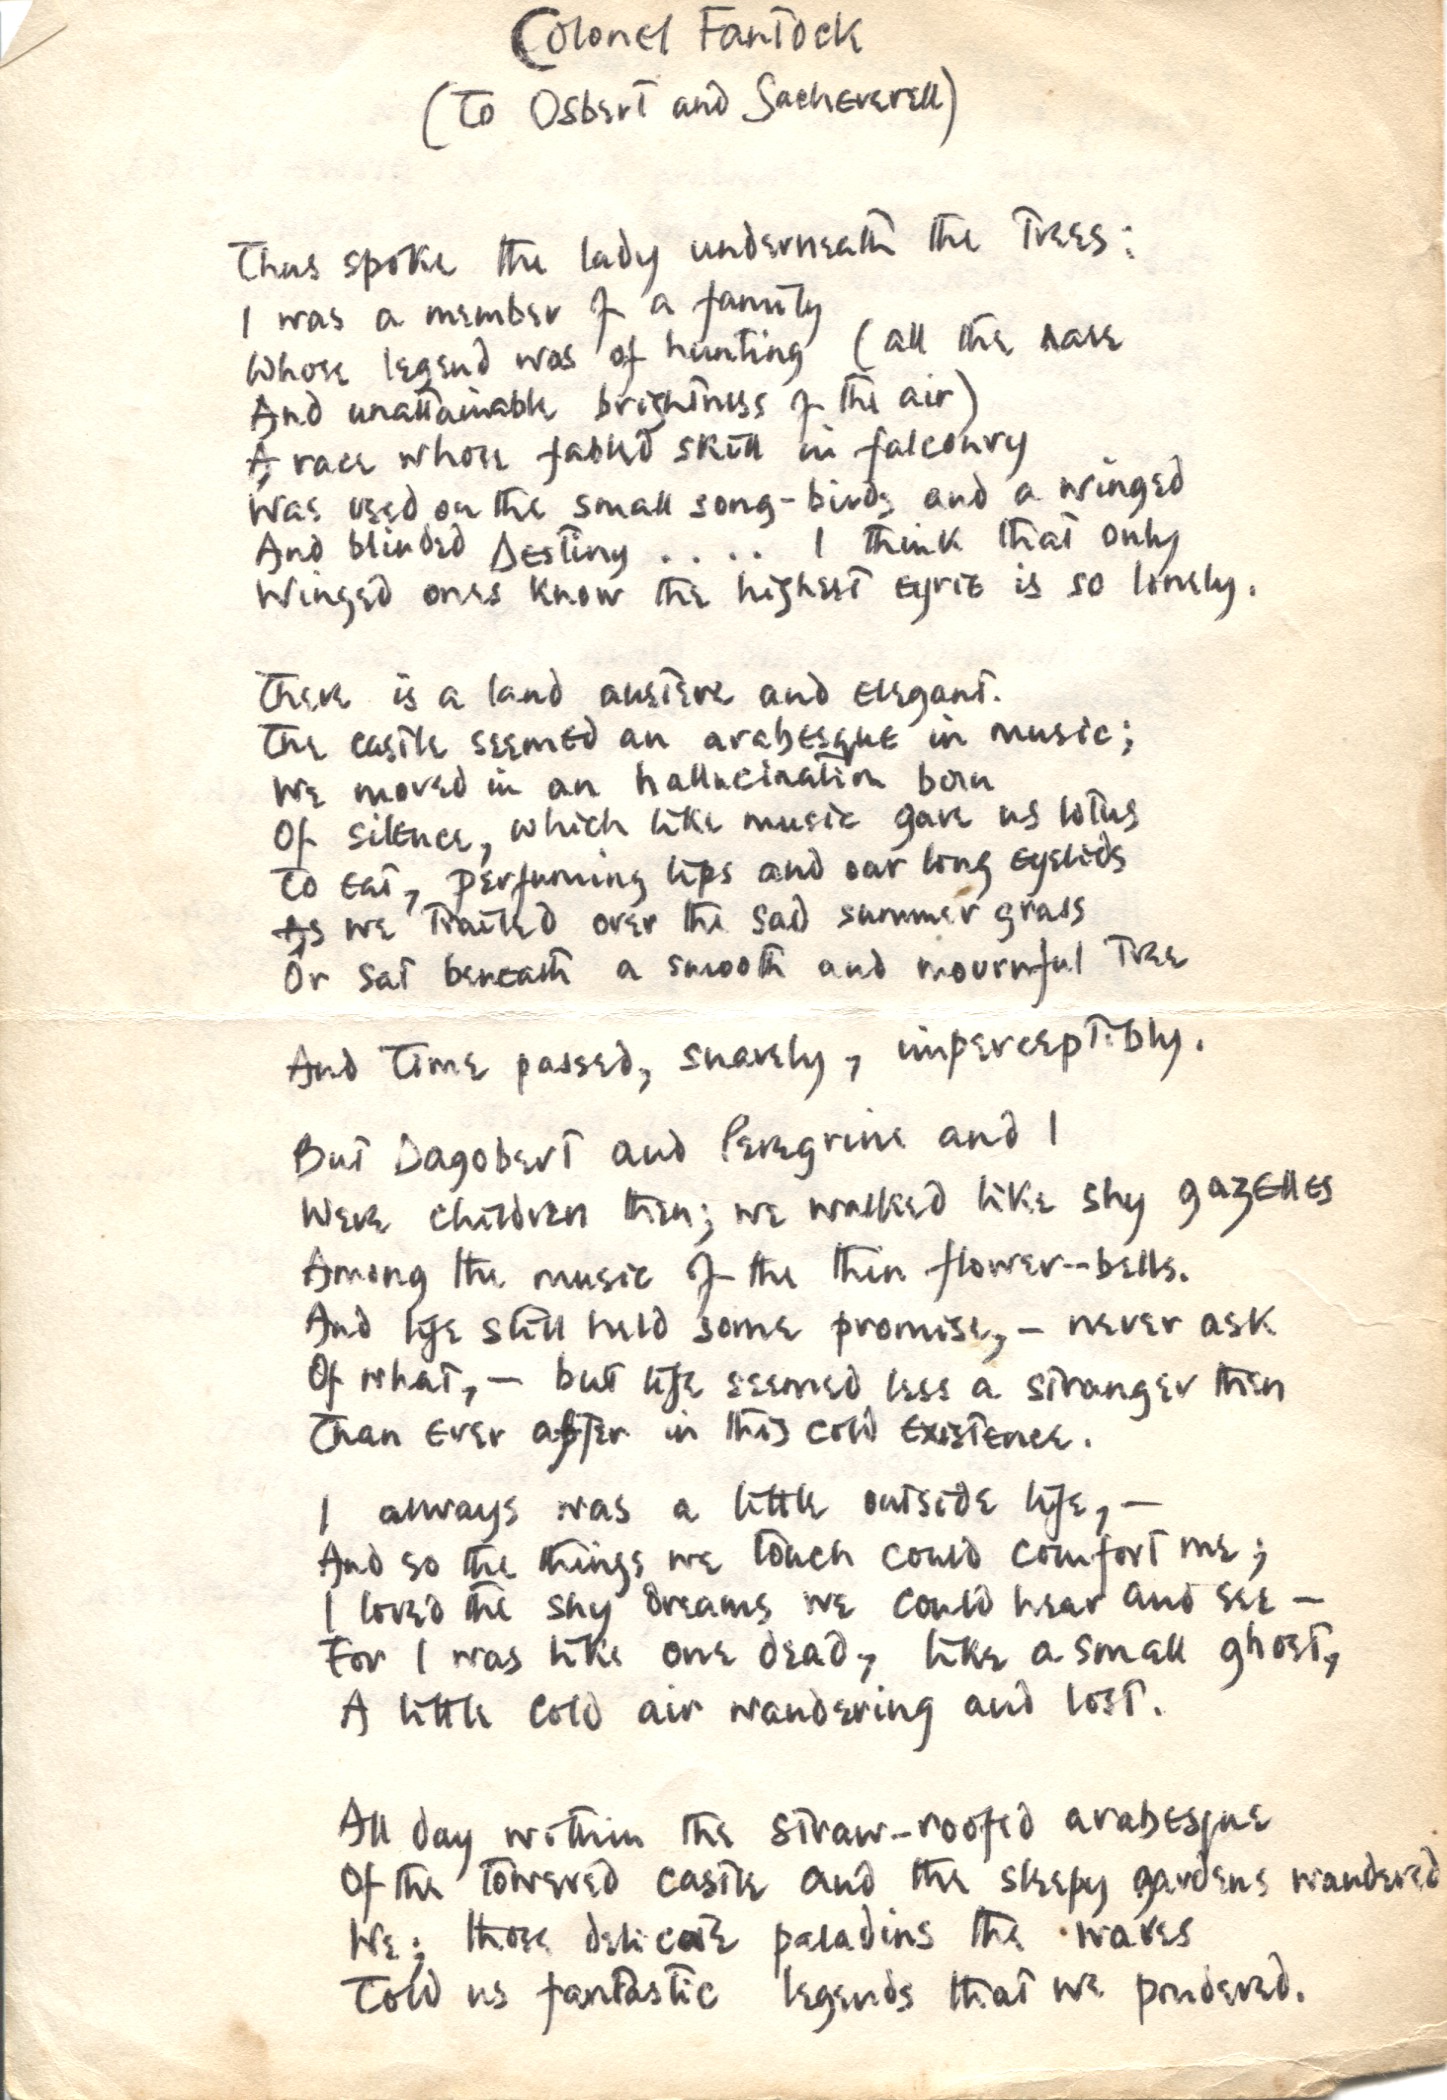 Colonel Fantock
(To Osbert and Sacheverell)
Thus spoke the lady underneath the trees:
I was a member of a family
Whose legend was of hunting (all the rare
And unattainable brightness of the air)
A race whose fabled skill in falconry
Was used on the small song-birds and a winged
And blinded Destiny . . . . I think that only
Winged ones know the highest eyrie is so lonely.
There is a land austere and elegant.
The castle seemed an arabesque in music;
We moved in an hallucination born
Of silence, which like music gave us lotus
To eat, perfuming lips and our long eyelids
As we trailed over the sad summer grass
Or sat beneath a smooth and mournful tree
And time passed, suavely, imperceptibly.
But Dagobert and Peregrine and I
Were children then; we walked like shy gazelles
Among the music of the thin flower-bells.
And life still held some promise, - never ask
Of what, - but life seemed less a stranger then
Than ever after in this cold existence.
I always was a little outside life, -
And so the things we touch could comfort me;
I loved the shy dreams we could hear and see -
For I was like one dead, like a small ghost,
A little cold air wandering and lost.
All day within the straw-roofed arabesque
Of the towered castle and the sleepy gardens wandered
We; those delicate paladins the waves
Told us fantastic legends that we pondered.